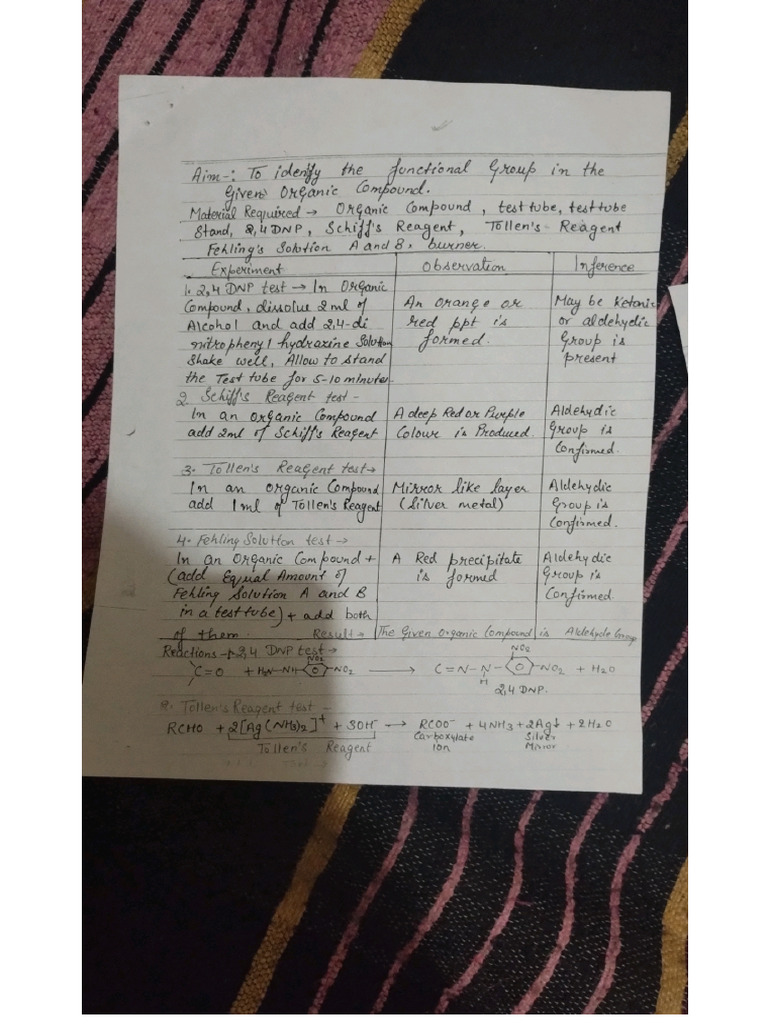 Aim-: To idenfy the functional Group in the
Given Organic Compound.
Material Required → Organic Compound, test tube, test tube
Stand, 2,4 DNP, Schiff's Reagent, Tollen's Reagent
Fehling's Solution A and B, burner.
Experiment Observation Inference
1. 2,4 DNP test → In Organic
Compound, dissolve 2 ml of An Orange or May be Ketonic
Alcohol and add 2,4-di red ppt is or aldehydic
nitrophenyl hydrazine Solution formed. Group is
Shake well, Allow to stand present
the Test tube for 5-10 minutes.
2. Schiff's Reagent test -
In an organic Compound A deep Red or Purple Aldehydic
add 2ml of Schiff's Reagent Colour is Produced. Group is
Confirmed.
3. Tollen's Reagent test →
In an organic Compound Mirror like layer Aldehydic
add 1ml of Tollen's Reagent (Silver metal) Group is
Confirmed.
4. Fehling Solution test →
In an Organic Compound + A Red precipitate Aldehydic
(add Equal Amount of is formed Group is
Fehling Solution A and B Confirmed
in a test tube) + add both
of them. Result → The Given Organic Compound is Aldehyde Group
Reactions → 2,4 DNP test →
C=O + H2N-NH- NO2 -NO2 → C=N-N- NO2 -NO2 + H2O
H
2,4 DNP.
2. Tollen's Reagent test -
RCHO + 2[Ag(NH3)2]+ + 3OH- → RCOO- + 4NH3 + 2Ag↓ + 2H2O
Carboxylate Silver
Tollen's Reagent Ion Mirror